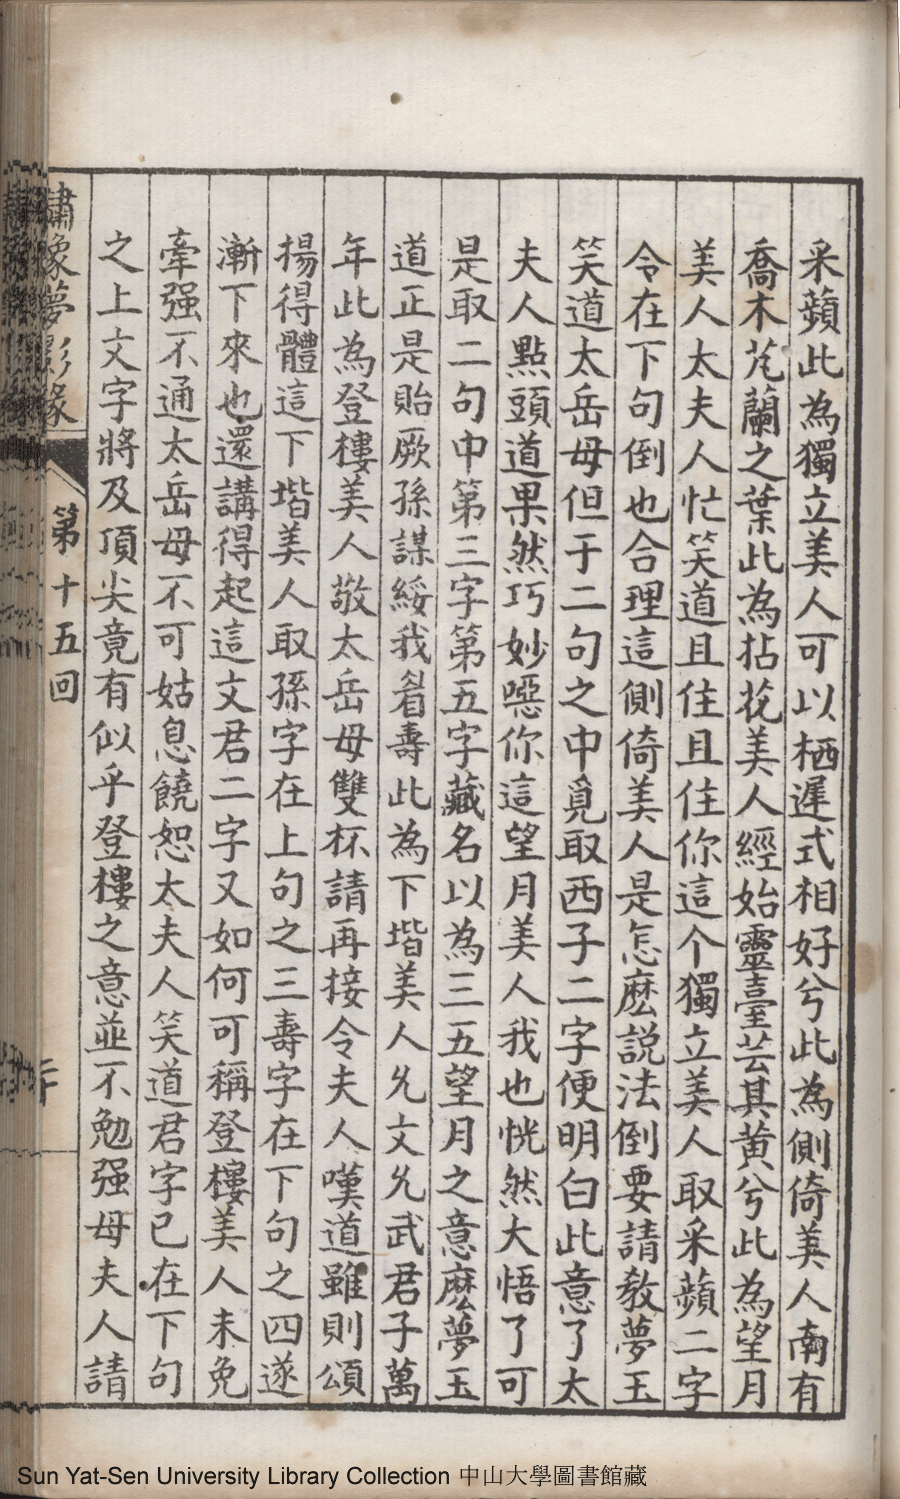 采蘋此為獨立美人可以栖遲式相好兮此為側倚美人南有
喬木芄蘭之葉此為拈花美人經始靈臺芸其黃兮此為望月
美人太夫人忙笑道且住且住你這个獨立美人取采蘋二字
令在下句倒也合理這側倚美人是怎麽説法倒要請教夢玉
笑道太岳母但于二句之中覓取西子二字便明白此意了太
夫人點頭道果然巧妙噁你這望月美人我也恍然大悟了可
是取二句中第三字第五字藏名以為三五望月之意麽夢玉
道正是貽厥孫謀綏我眉壽此為下堦美人允文允武君子萬
年此為登樓美人敬太岳母雙杯請再接令夫人嘆道雖則頌
揚得體這下堦美人取孫字在上句之三壽字在下句之四遂
漸下來也還講得起這文君二字又如何可稱登樓美人未免
牽强不通太岳母不可姑息饒恕太夫人笑道君字已在下句
之上文字將及頂尖竟有似乎登樓之意並不勉强母夫人請
繡像夢影緣
第十五回
Sun Yat-Sen University Library Collection 中山大學圖書館藏